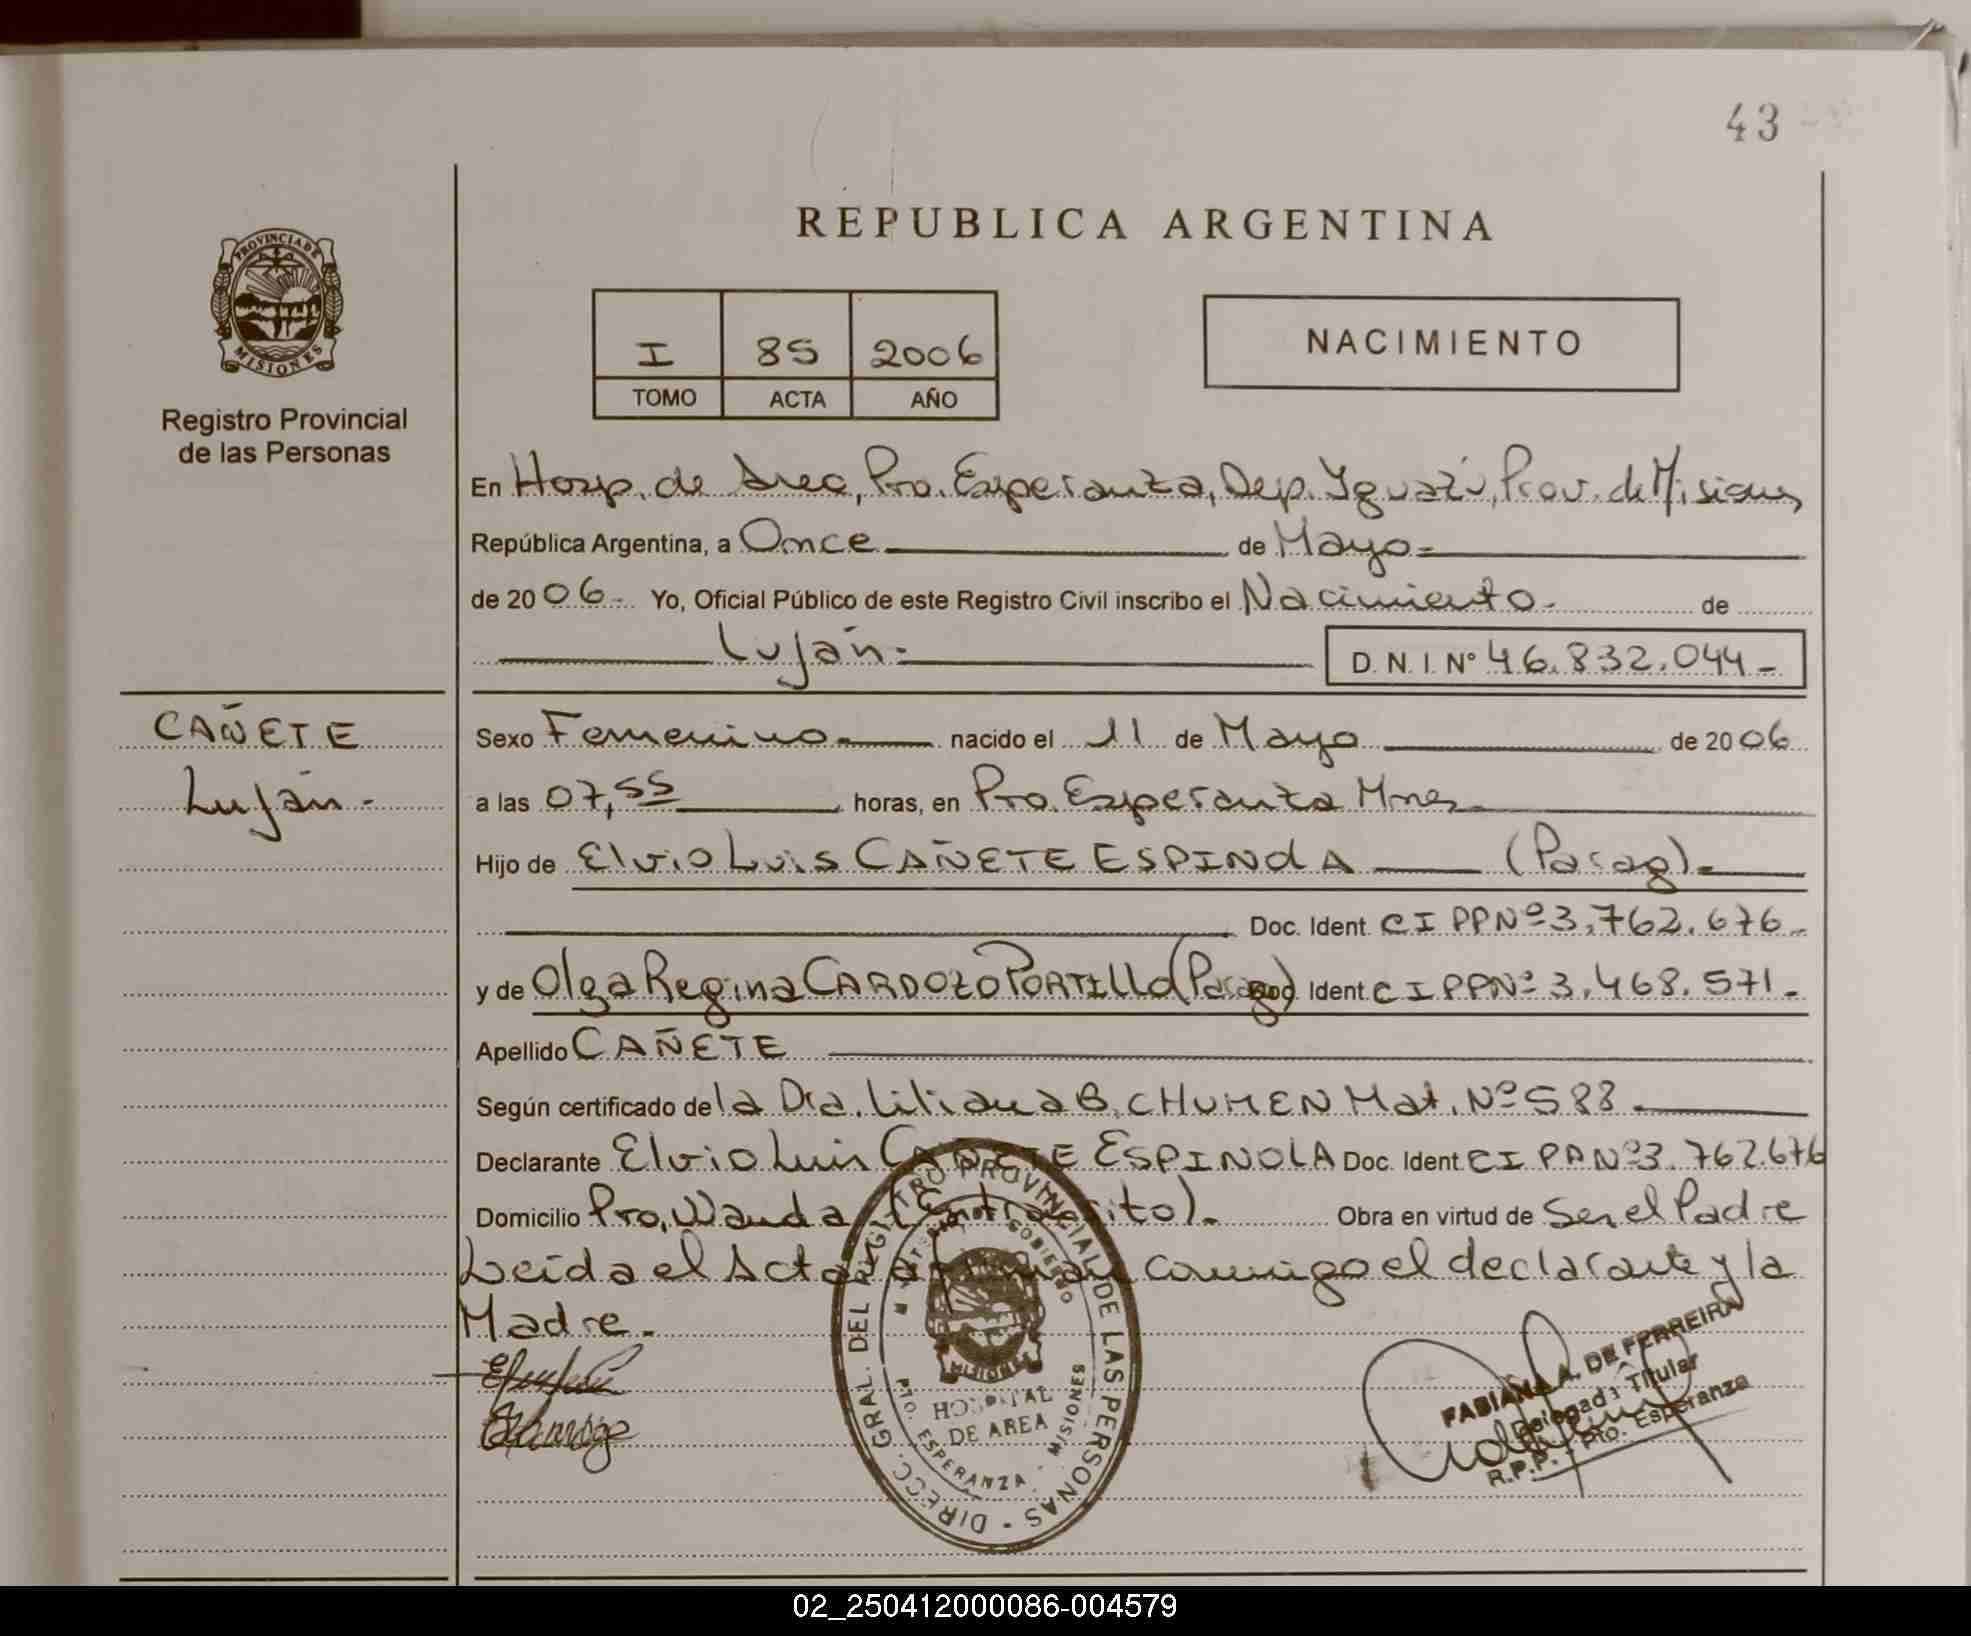 43
REPUBLICA ARGENTINA
PROVINCIA DE
MISIONES
Registro Provincial
de las Personas
I 85 2006
TOMO ACTA AÑO
NACIMIENTO
En Hosp. de Area, Pto. Esperanza, Dep. Yguazú, Prov. de Misiones
República Argentina, a Once de Mayo-
de 2006- Yo, Oficial Público de este Registro Civil inscribo el Nacimiento- de
Luján.-
D. N. I. Nº 46.832.044-
CAÑETE
Luján-
Sexo Femenino- nacido el 11 de Mayo de 2006
a las 07,55 horas, en Pto. Esperanza Mnes-
Hijo de Elvio Luis CAÑETE ESPINOLA (Parag)-
Doc. Ident CI PP Nº 3.762.676-
y de Olga Regina CARDOZO PORTILLO (Parag) Doc. Ident CI PP Nº 3.468.571-
Apellido CAÑETE
Según certificado de la Dra. Liliana B. CHUMEN Mat. Nº 588.
Declarante Elvio Luis CAÑETE ESPINOLA Doc. Ident CI PP Nº 3.762.676
Domicilio Pto. Wanda Obra en virtud de Ser el Padre
Leída el Acta conmigo el declarante y la
Madre.-
DIRECC. GRAL. DEL REGISTRO PROVINCIAL DE LAS PERSONAS -
GOBIERNO
MISIONES
HOSPITAL
DE AREA
PTO. ESPERANZA - MISIONES
FABIANA A. DE FERREIRA
Delegada Titular
R.P.P. - Pto. Esperanza
02_250412000086-004579